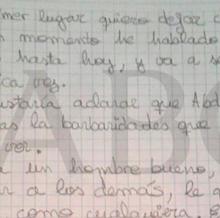 mer lugar quiero dejar c
momento he hablado
hasta hoy, y va a s
ca vez.
ustaría aclarar que Abd
as la barbaridades que
ver.
un hombre bueno,
r a los demás, le a
como cualquiera, e
ABC